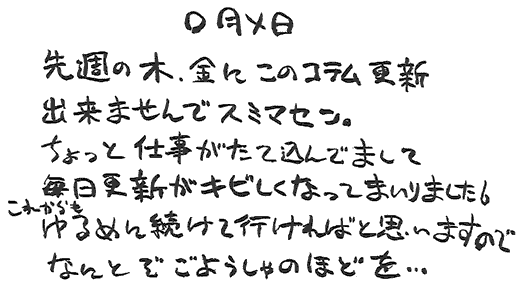 〇月×日
先週の木、金にこのコラム更新
出来ませんでスミマセン。
ちょっと仕事がたて込んでまして
毎日更新がキビしくなってまいりました。
これからも
ゆるめに続けて行ければと思いますので
なにとぞごようしゃのほどを…